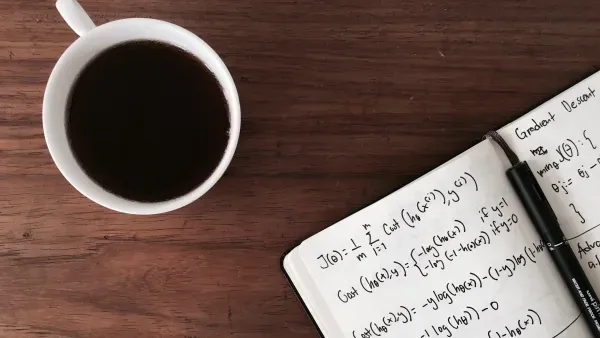 J(θ) = 1/m Σ i=1 m Cost (hθ(x(i)), y(i))
Cost (hθ(x), y) = { -log(hθ(x)) if y=1
-log (1-hθ(x)) if y=0
Cost (hθ(x), y) = -y log(hθ(x)) - (1-y) log (1-
-1 log(hθ)) - 0
(1-hθ(x))
Gradient Descent
minθ J(θ): {
θj := θj -
}
Adva